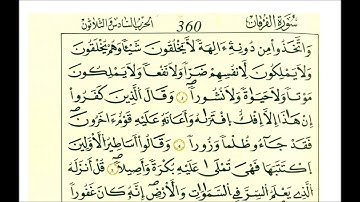 سُورَةُ الفُرْقَانِ 360 الحزب السادس والثلاثون
وَاتَّخَذُوا مِن دُونِهِ ءَالِهَةً لَّا يَخْلُقُونَ شَيْئًا وَهُمْ يُخْلَقُونَ
وَلَا يَمْلِكُونَ لِأَنفُسِهِمْ ضَرًّا وَلَا نَفْعًا وَلَا يَمْلِكُونَ
مَوْتًا وَلَا حَيَوٰةً وَلَا نُشُورًا وَقَالَ الَّذِينَ كَفَرُوا
إِنْ هَٰذَا إِلَّا إِفْكٌ افْتَرَىٰهُ وَأَعَانَهُ عَلَيْهِ قَوْمٌ ءَاخَرُونَ
فَقَدْ جَاءُو ظُلْمًا وَزُورًا وَقَالُوا أَسَاطِيرُ الْأَوَّلِينَ
اكْتَتَبَهَا فَهِيَ تُمْلَىٰ عَلَيْهِ بُكْرَةً وَأَصِيلًا قُلْ أَنزَلَهُ
الَّذِي يَعْلَمُ السِّرَّ فِي السَّمَٰوَٰتِ وَالْأَرْضِ إِنَّهُ كَانَ غَفُورًا